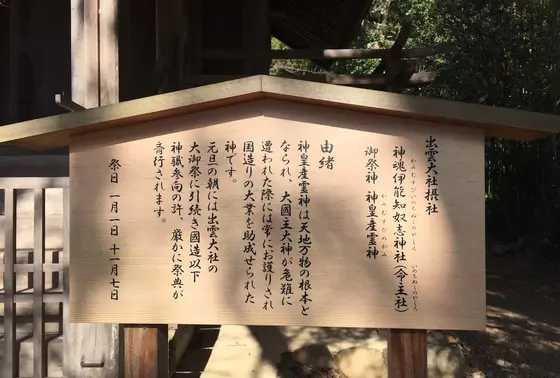 出雲大社摂社
かみむすびいのちぬしのやしろ
神魂伊能知奴志神社(命主社)
いのちぬしのやしろ
かみむすびのかみ
御祭神 神皇産霊神
由緒
神皇産霊神は天地万物の根本と
なられ、大國主大神が危難に
遭われた際には常にお護りされ
国造りの大業を助成せられた
神です。
元旦の朝には出雲大社の
大御祭に引続き國造以下
神職参向の許、厳かに祭典が
斉行されます。
祭日 一月一日 十一月七日